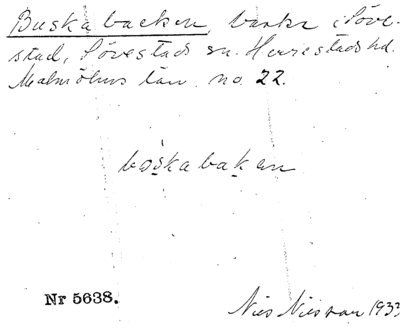 Buskabacken, backe i Söve-
stad, Sövestads sn. Herrestads hd.
Malmöhus län. no. 22.
boskabakan
Nr 5638.
Nils Nilsson 1933